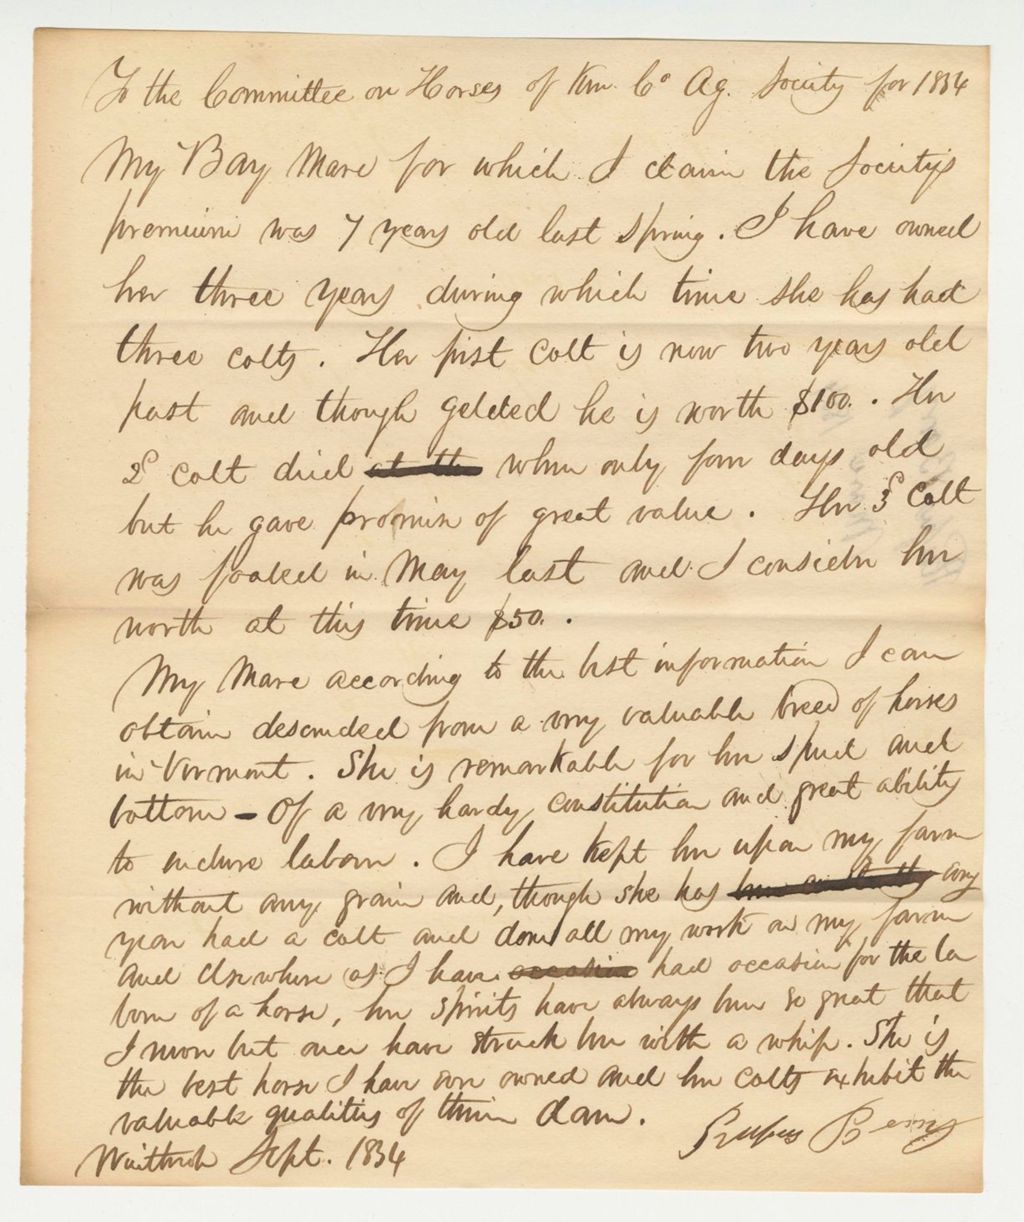 To the Committee on Horses of Ken. Co Ag. Society for 1834
My Bay Mare for which I claim the Society's
premium was 7 years old last Spring. I have owned
her three years during which time she has had
three colts. Her first Colt is now two years old
past and though gelded he is worth $100. Her
2d colt died when only four days old
but he gave promise of great value. Her 3d Colt
was foaled in May last and I consider her
worth at this time $50.
My Mare according to the best information I can
obtain descended from a very valuable breed of horses
in Vermont. She is remarkable for her speed and
bottom – Of a very hardy constitution and great ability
to endure labour. I have kept her upon my farm
without any grain and, though she has every
year had a colt and done all my work on my farm
and elsewhere as I have occasion had occasion for the la
bour of a horse, her spirits have always been so great that
I never but once have struck her with a whip. She is
the best horse I have ever owned and her colts exhibit the
valuable qualities of their dam.
Rufus Berry
Winthrop Sept. 1834